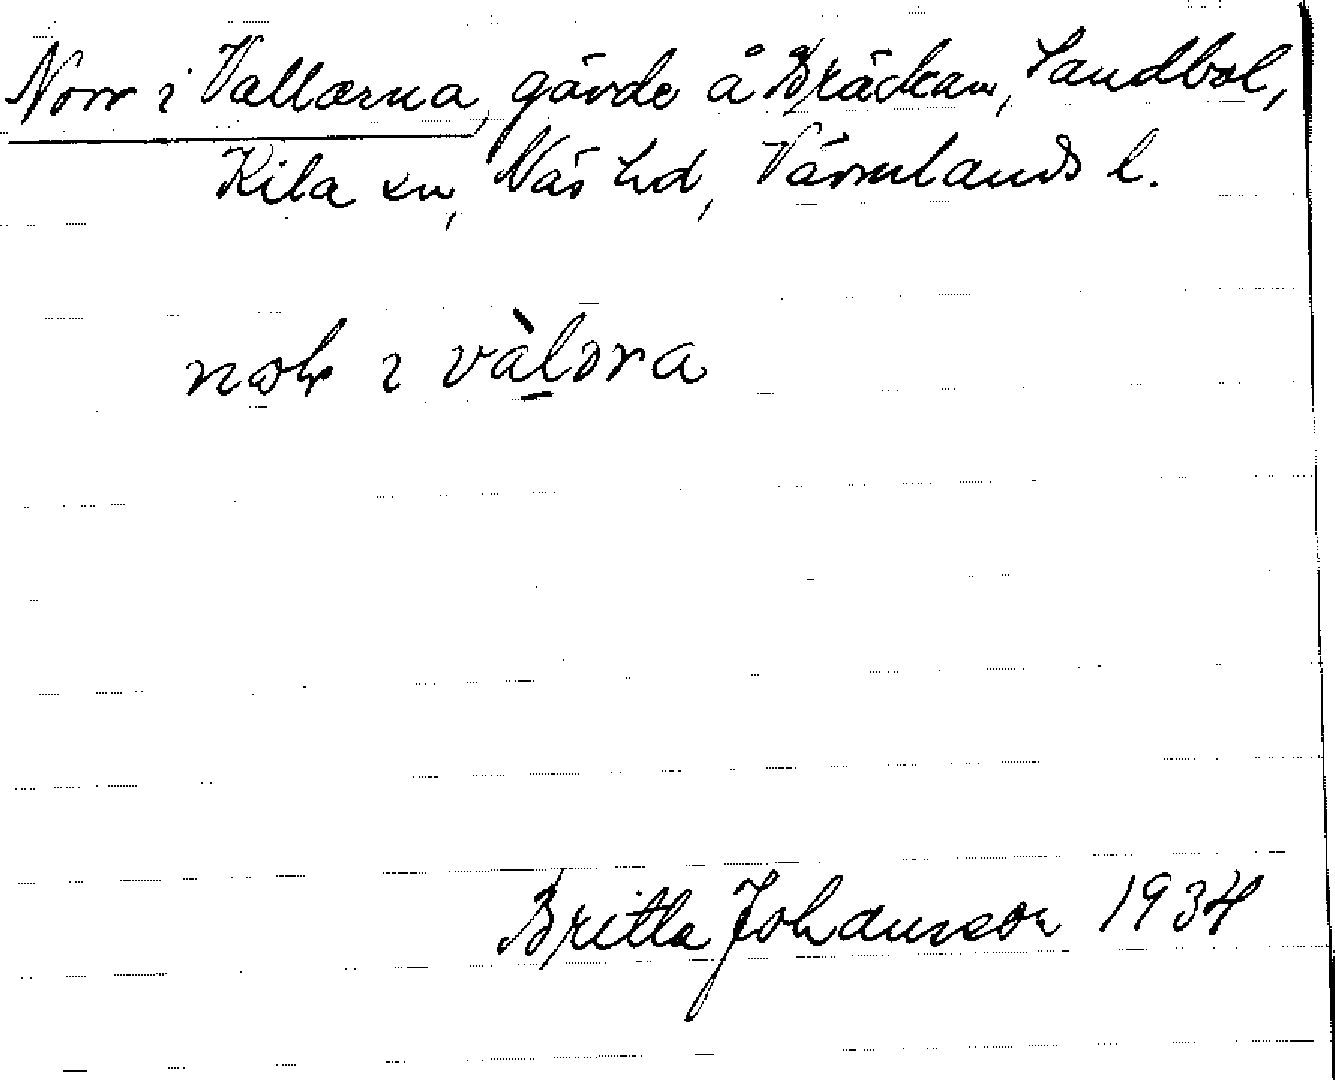 Norr i Vallarna, gärde å Bräckan, Sandbol,
Kila sn, Näs hd, Värmlands l.
i vàlǝra
Britta Johansson 1934